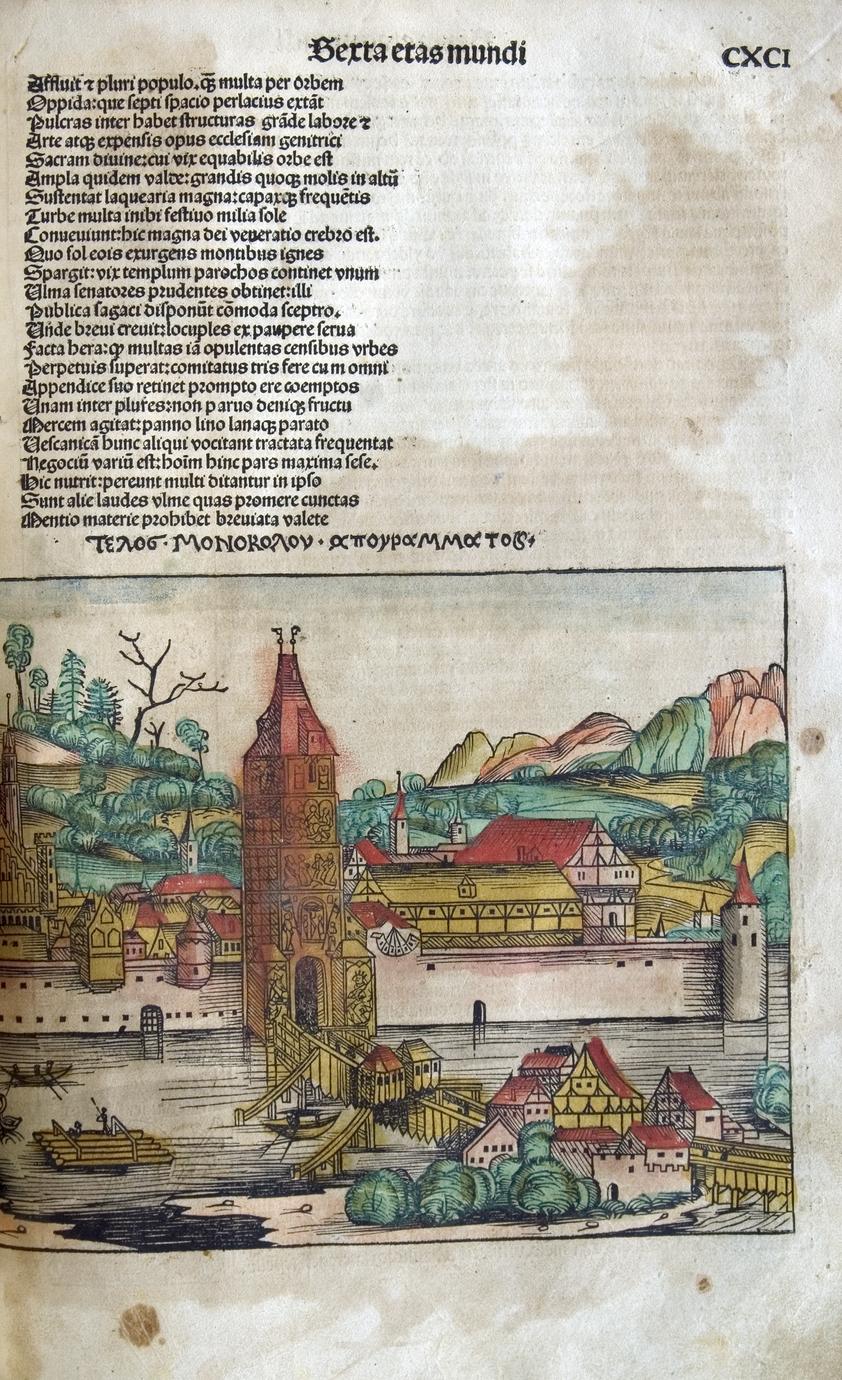 Sexta etas mundi
CXCI
Affluit ⁊ pluri populo.qꝫ multa per orbem
Oppida:que septi spacio perlatius extāt
Pulcras inter habet structuras grāde labore ⁊
Arte atqꝫ expensis opus ecclesiam genitrici
Sacram diuine:cui vix equabilis orbe est
Ampla quidem valde:grandis quoqꝫ molis in altū
Sustentat laquearia magna:capaxqꝫ frequētis
Turbe multa inibi festiuo milia sole
Conueuiunt:hic magna dei veueratio crebro est.
Quo sol eois exurgens montibus ignes
Spargit:vix templum parochos continet vnum
Ulma senatores prudentes obtinet:illi
Publica sagaci disponūt cōmoda sceptro.
Unde breui creuit:locuples ex paupere serua
Facta hera:ꝙ multas iā opulentas censibus vrbes
Perpetuis superat:comitatus tris fere cum omni
Appendice suo retinet prompto ere coemptos
Unam inter plures:non paruo deniqꝫ fructu
Mercem agitat:panno lino lanaqꝫ parato
Uescanicā hunc aliqui vocitant tractata frequentat
Negociū variū est:hoīm hinc pars maxima sese.
Hic nutrit:pereunt multi ditantur in ipso
Sunt alie laudes vlme quas promere cunctas
Mentio materie prohibet breuiata valete
ΤΕΛΟΣ· ΜΟΝΟΚΩΛΟΥ · απουραμματος·